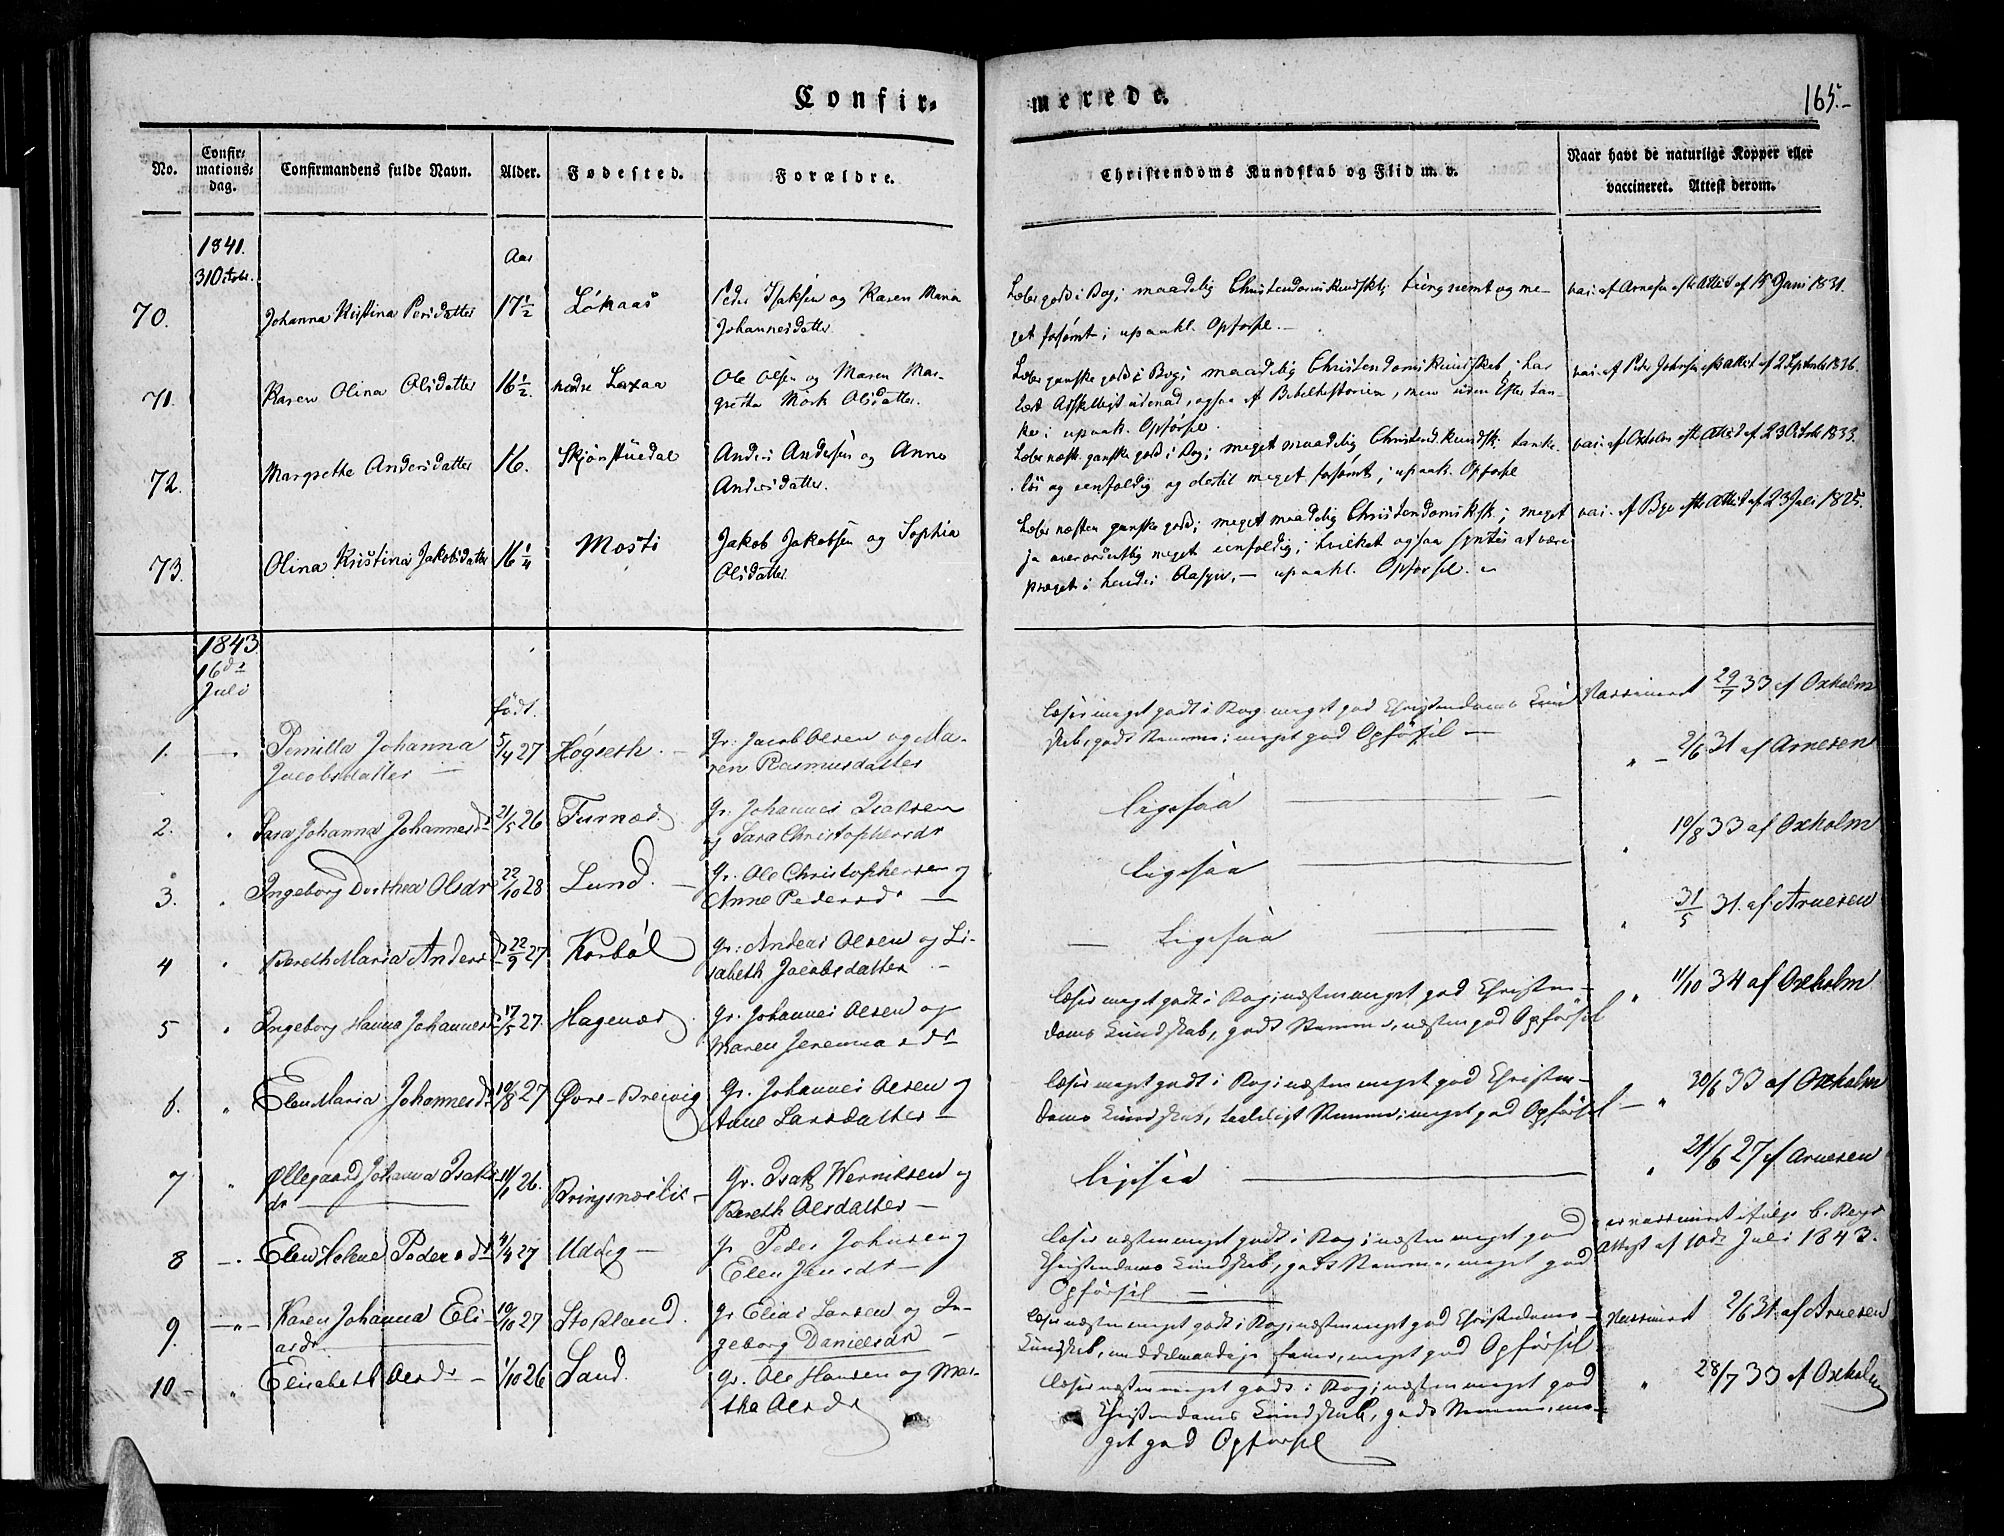 Confir-
merede.
165.-
No.
Confir-
mations-
dag.
Confirmandens fulde Navn.
Alder.
Fødested.
Forældre.
Christendoms Kundskab og Flid m. v.
Naar havt de naturlige Kopper eller
vaccineret. Attest derom.
1841.
31 Octobr.
Aar
70.
Johanna Kristina Persdatter
17 1/2
Løkaas
Peder Isaksen og Karen Maria
Johannesdatter
Læser godt i Bog; maadelig Christendomskundsk; tungnemt og me-
get forsømt; upaakl. Opførsel. -
vac. af Arnesen efter Attest af 15 Juni 1831.
71.
Karen Olina Olsdatter
16 1/2.
nedre Laxaa
Ole Olsen og Maren Mar-
gretha Mork Olsdatter.
Læser ganske godt i Bog; maadelig Christendomskundskab; har
lært Adskilligt udenad, ogsaa af Bibelhistorien, men uden Efter tan-
ke; upaak. Opførsel.
vac. af Peder Johnsen efter attest af 2 Septembr 1836.
72.
Margrethe Andersdatter
16.
Skjønstuedal
Anders Andersen og Anne
Andersdatter.
Læser næst. ganske godt i Bog; meget maadelig Christend.kundsk. tanke-
løs og eenfoldig og dertil meget forsømt; upaak. Opførsel
vac. af Oxholm efter Attest af 23 Octobr 1833.
73.
Olina Kristina Jakobsdatter
16 1/4
Mosti
Jakob Jakobsen og Sophia
Olsdatter.
Læser næsten ganske godt; meget maadelig Christendomsksk; meget
ja overordentlig meget eenfoldig; hvilket ogsaa synes at være
præget i hendes Aasyn, - upaakl. Opførsel.
vac. af Bye efter Attest af 23 Juli 1825.
1843
16de
Juli
født.
1.
Pernilla Johanna
Jacobsdatter
5/4 27
Høgseth.
Gr. Jacob Olsen og Ma-
ren Rasmusdatter
læser meget godt i Bog meget god Christendoms Kund
skab, gods Nemme; meget god Opførsel -
Vassineret 29/7 33 af Oxholm
2.
Sara Johanna Johannesdr
21/5 26
Furnæs.
Gr. Johannes Isaksen
og Sara Christophersdr
ligesaa
" - 2/6 31 af Arnesen
3.
Ingeborg Dorthea Olsdr
22/10 28
Lund.
Gr. Ole Christophersen og
Anne Pedersdr
ligesaa
" 10/8 33 af Oxholm
4
Bereth Maria Andersd
22/9 27
Korbøl
Gr. Andeas Olsen og Li-
sabeth Jacobsdatter
Ligesaa
" 31/5 31. af Arnesen
5
Ingeborg Hanna Johannesd
17/5 27.
Hagenæs.
Gr. Johannes Olsen og
Maren Jeremiasdr
læser meget godt i Bog; næsten meget god Christen-
doms Kundskab, gods Nemme, næsten god Opførsel
" 11/10 34 af Oxholm
6.
Elen Maria Johannesdr
10/8 27
Øvre-Breivig
Gr. Johannes Olsen og
Anne Larsdatter -
læser meget godt i Bog; næsten meget god Christen-
doms Kundskab, taaleligt Nemme; meget god Opførsel -
" 30/6 33 af Oxholm
7
Øllegaard Johanna Isaks
dr
11/1 26.
Bringsnæslie
Gr. Isak Berniksen og
Bereth Olsdatter -
ligesaa
" 21/6 27 af Arnesen
8
Elen Helene Pedersdr
4/4 27
Utvig -
gr Peder Johnsen og
Elen Jensdr -
læser næsten meget godt i Bog; næsten meget god
Christendoms Kundskab, gods Nemme, meget god
Opførsel -
er vassineret ifølge b. Regs
Attest af 10de Juli 1843.
9.
- " -
Karen Johanna Eli-
asdr
19/10 27
Stokland.
gr Elias Larsen og In-
geborg Danielsdr -
læser næsten meget godt i Bog; næsten meget god Christendoms-
Kundskab, middelmaadige Evner, meget god Opførsel
Vassineret 2/6 31. af Arnesen
10 -
"
Elisabeth Olsdr -
1/10 26
Sand.
Gr. Ole Hansen og Mar-
tha Olsdr
læser næsten meget godt i Bog; næsten meget god
Christendoms Kundskab, gods Nemme, me-
get god Opførsel
" 28/7 33 af Oxholm